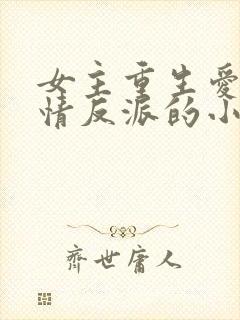 女主重生爱
情反派的小
齐世庸人